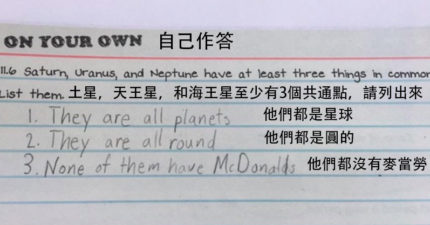 ON YOUR OWN 自己作答
11.6 Saturn, Uranus, and Neptune have at least three things in common
List them. 土星，天王星，和海王星至少有3個共通點，請列出來
1. They are all planets 他們都是星球
2. They are all round 他們都是圓的
3. None of them have McDonalds 他們都沒有麥當勞